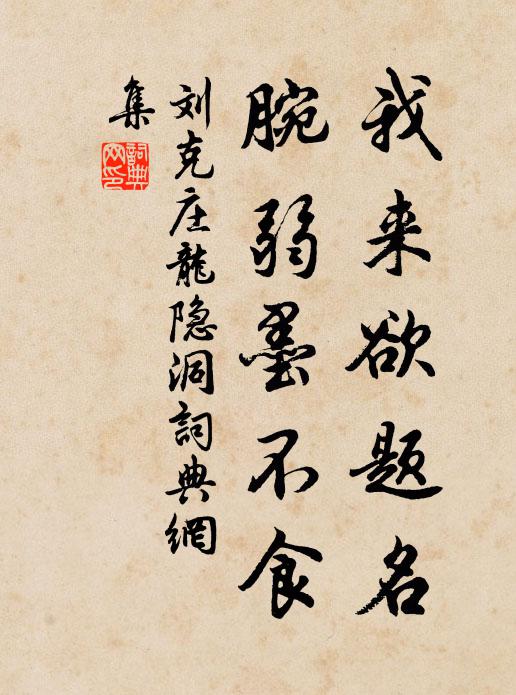 我来欲题名
腕弱墨不食
刘克庄龍隐洞詞典網
集
詞典
网印